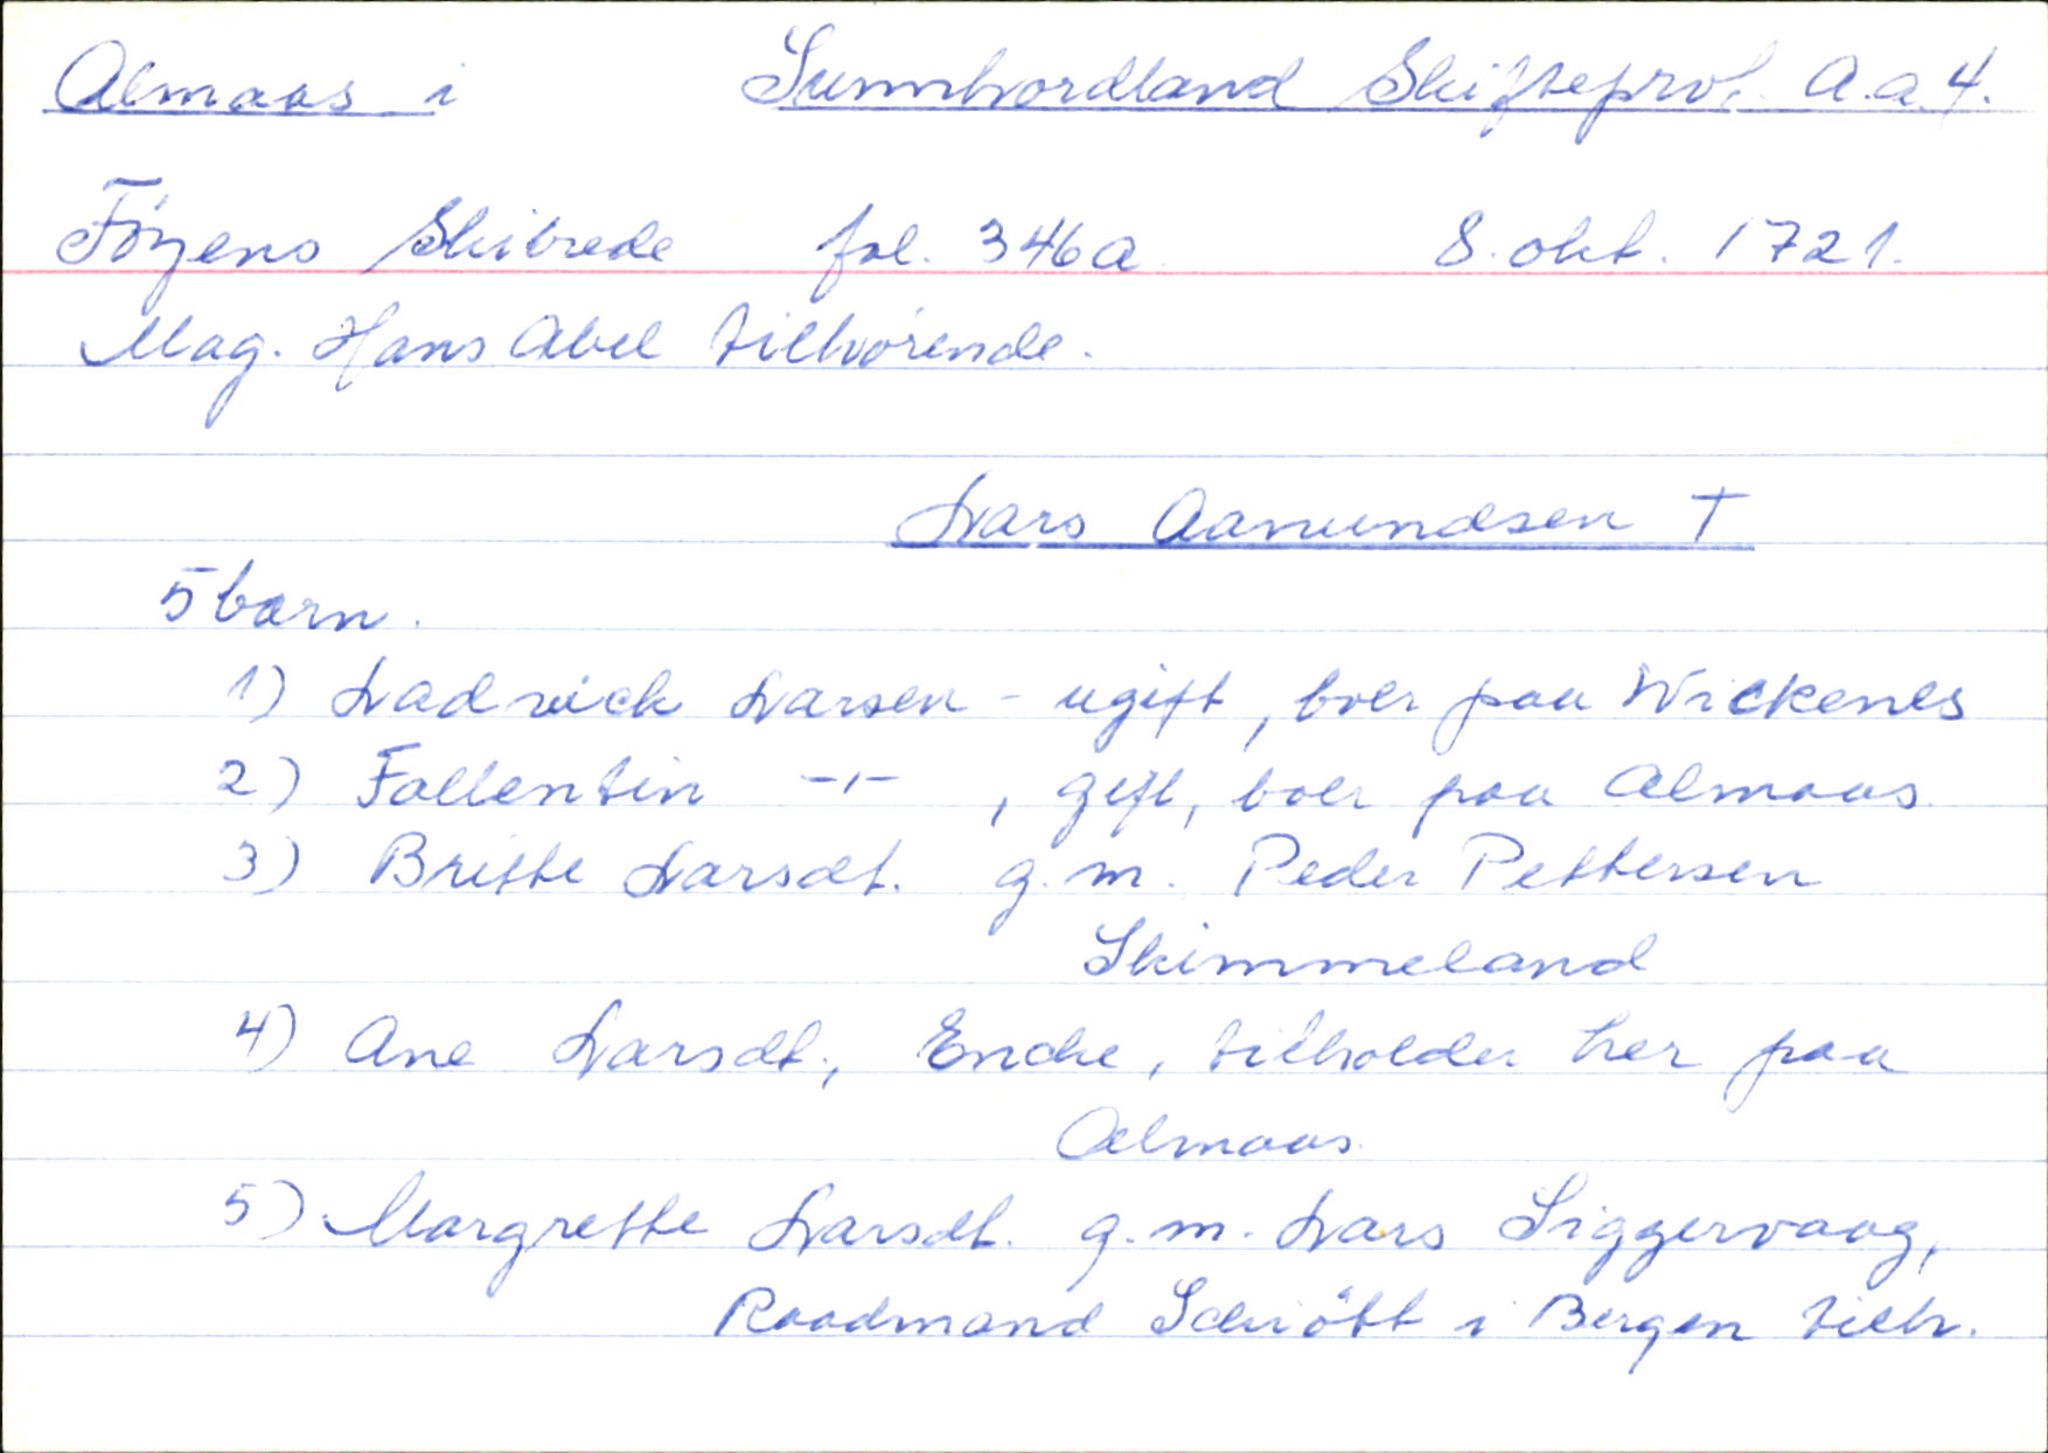 Almaas i Sunnhordland Skifteprot. A.a.4.
Föyens Skibrede fol. 346a 8. okt. 1721.
Mag. Hans Abel tilhörende.
Lars Aamundsen †
5 barn.
1) Ladwick Larsen - ugift, boer paa Wickenes
2) Fallentin -"- , gift, boer paa Almaas
3) Britte Larsdt. g.m. Peder Pettersen
Skimmeland
4) Ane Larsdt., Encke, tilholder her paa
Almaas
5) Margrette Larsdt. g.m. Lars Siggervaag,
Raadmand Schiött i Bergen tilh.